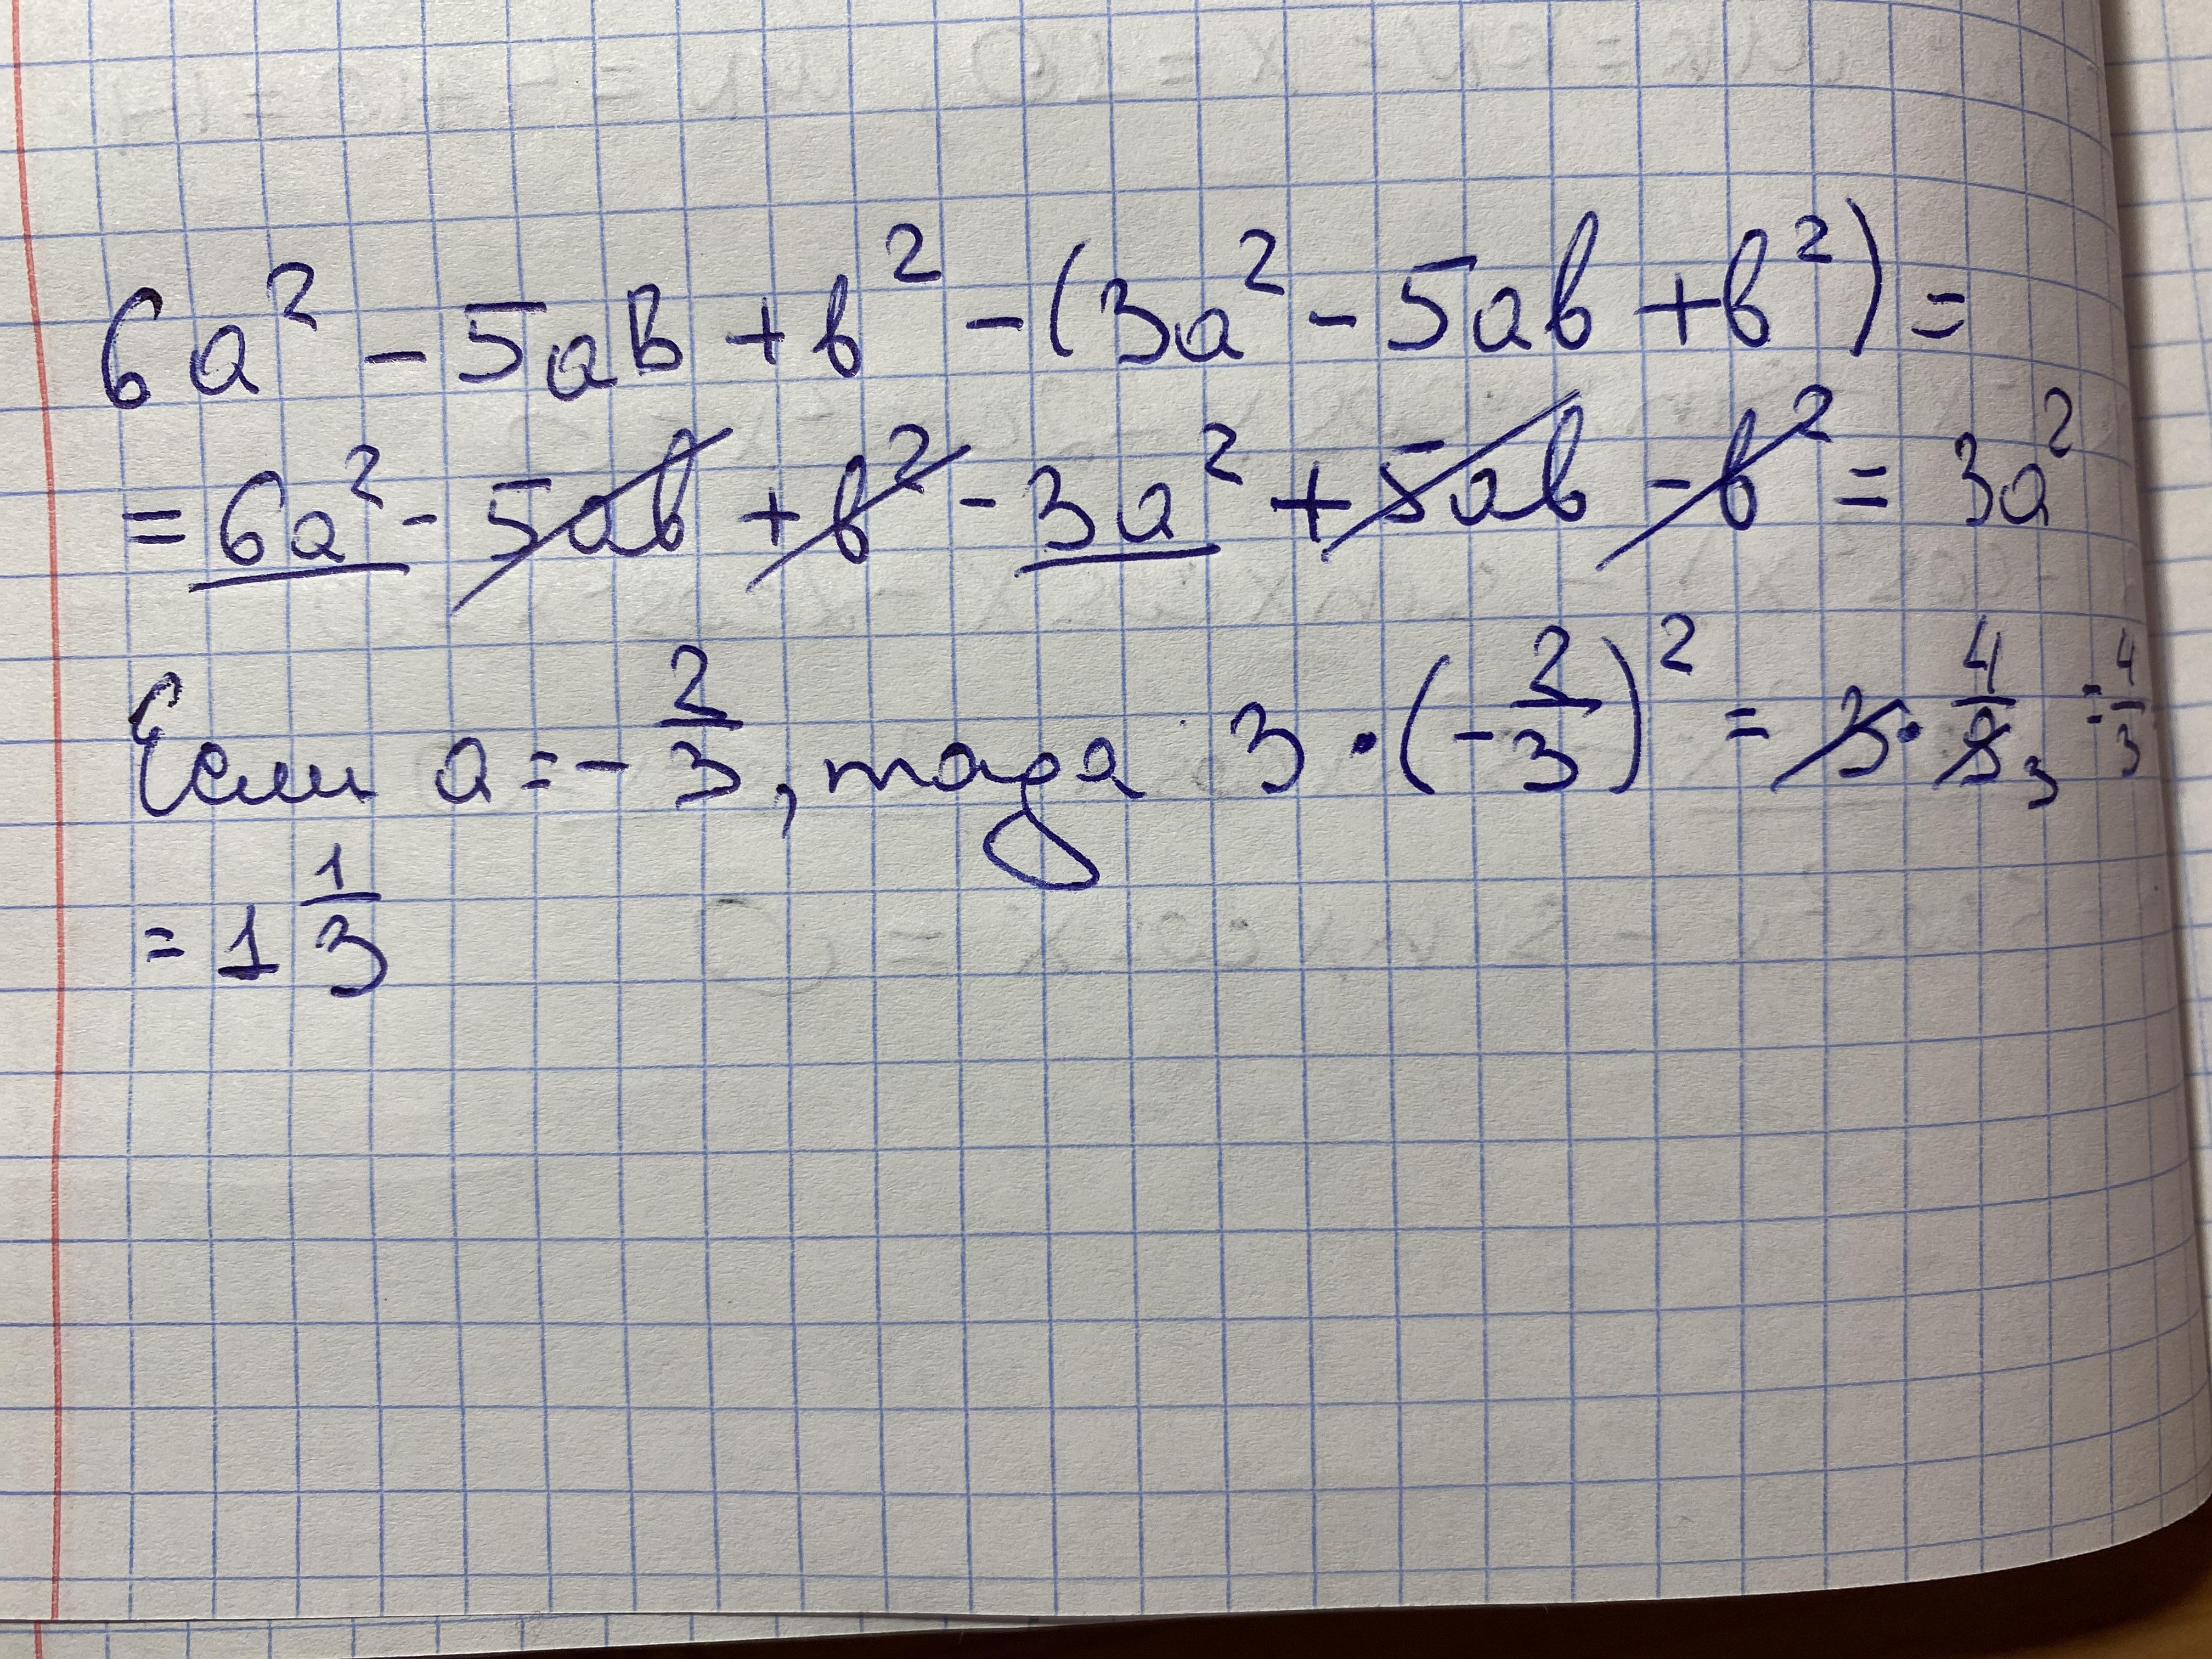 6a² - 5ab + b² - (3a² - 5ab + b²) =
= 6a² - 5ab + b² - 3a² + 5ab - b² = 3a²
Если a = - 2/3, тогда 3 · (- 2/3)² = 3 · 4/9 3 = 4/3
= 1 1/3